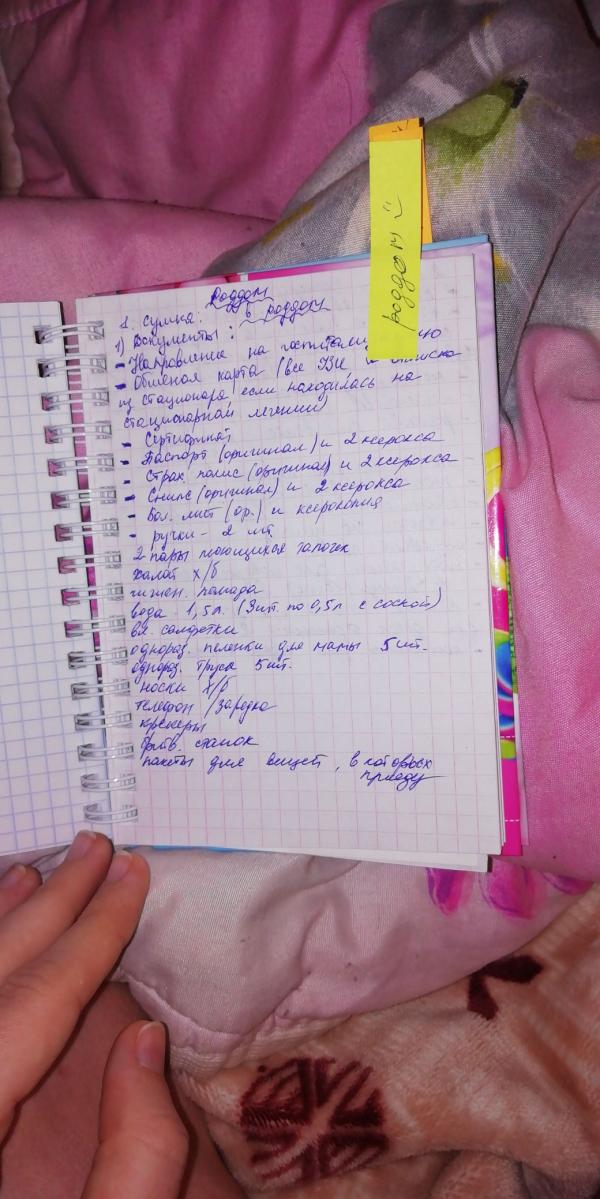 роддом :)
Роддом
1. Сумка: в роддом
1) Документы:
- Направление на
- Обменная карта (все УЗИ и выписка
из стационара, если находилась на
стационарном лечении)
- Сертификат
- Паспорт (оригинал) и 2 ксерокса
- Страх. полис (оригинал) и 2 ксерокса
- Снилс (оригинал) и 2 ксерокса
- Бол. лист (ор.) и ксерокопия
- ручки - 2 шт.
2 пары моющихся тапочек
халат х/б
гигиен. помада
вода 1,5л. (3шт. по 0,5л с соской)
вл. салфетки
однораз. пеленки для мамы 5шт.
однораз. труса 5шт.
носки х/б
телефон/зарядка
крекеры
брив. станок
пакеты для вещей, в которых
приеду